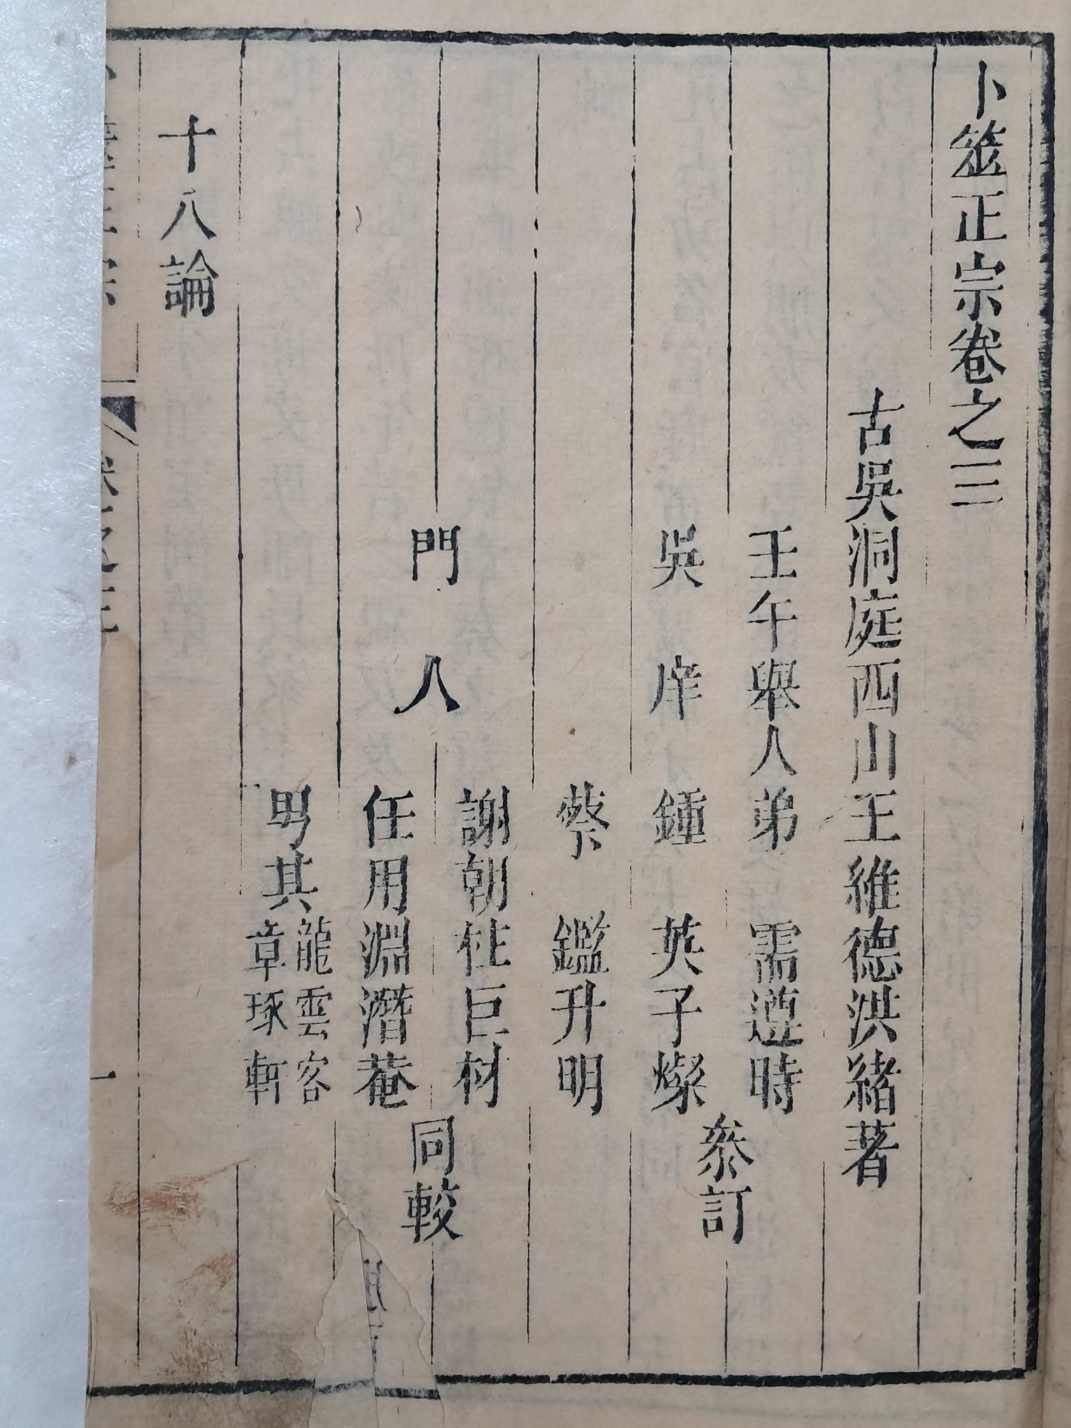 卜筮正宗卷之三
古吳洞庭西山王維德洪緒著
壬午舉人弟 需遵時
吳 庠 鍾 英子燦
參訂
蔡 鑑升明
謝朝柱巨材
門 人
任用淵潛菴
同較
男其龍雲客
章琢軒
十八論
卷之三
一